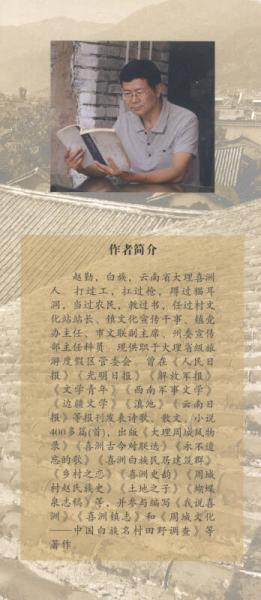 作者简介
赵勤，白族，云南省大理喜洲
人。打过工，扛过枪，蹲过猫耳
洞，当过农民，教过书，任过村文
化站站长、镇文化宣传干事、镇党
办主任、市文联副主席、州委宣传
部主任科员。现供职于大理省级旅
游度假区管委会。曾在《人民日
报》《光明日报》《解放军报》
《文学青年》《西南军事文学》
《边疆文学》《滇池》《云南日
报》等报刊发表诗歌、散文、小说
400多篇(首)，出版《大理周城风物
录》《喜洲古今对联选》《永不遗
忘的歌》《喜洲白族民居建筑群》
《乡村之恋》《喜洲史韵》《周城
村赵氏族史》《土地之子》《蝴蝶
泉志稿》等，并参与编写《我说喜
洲》《喜洲镇志》和《周城文化
——中国白族名村田野调查》等
著作。